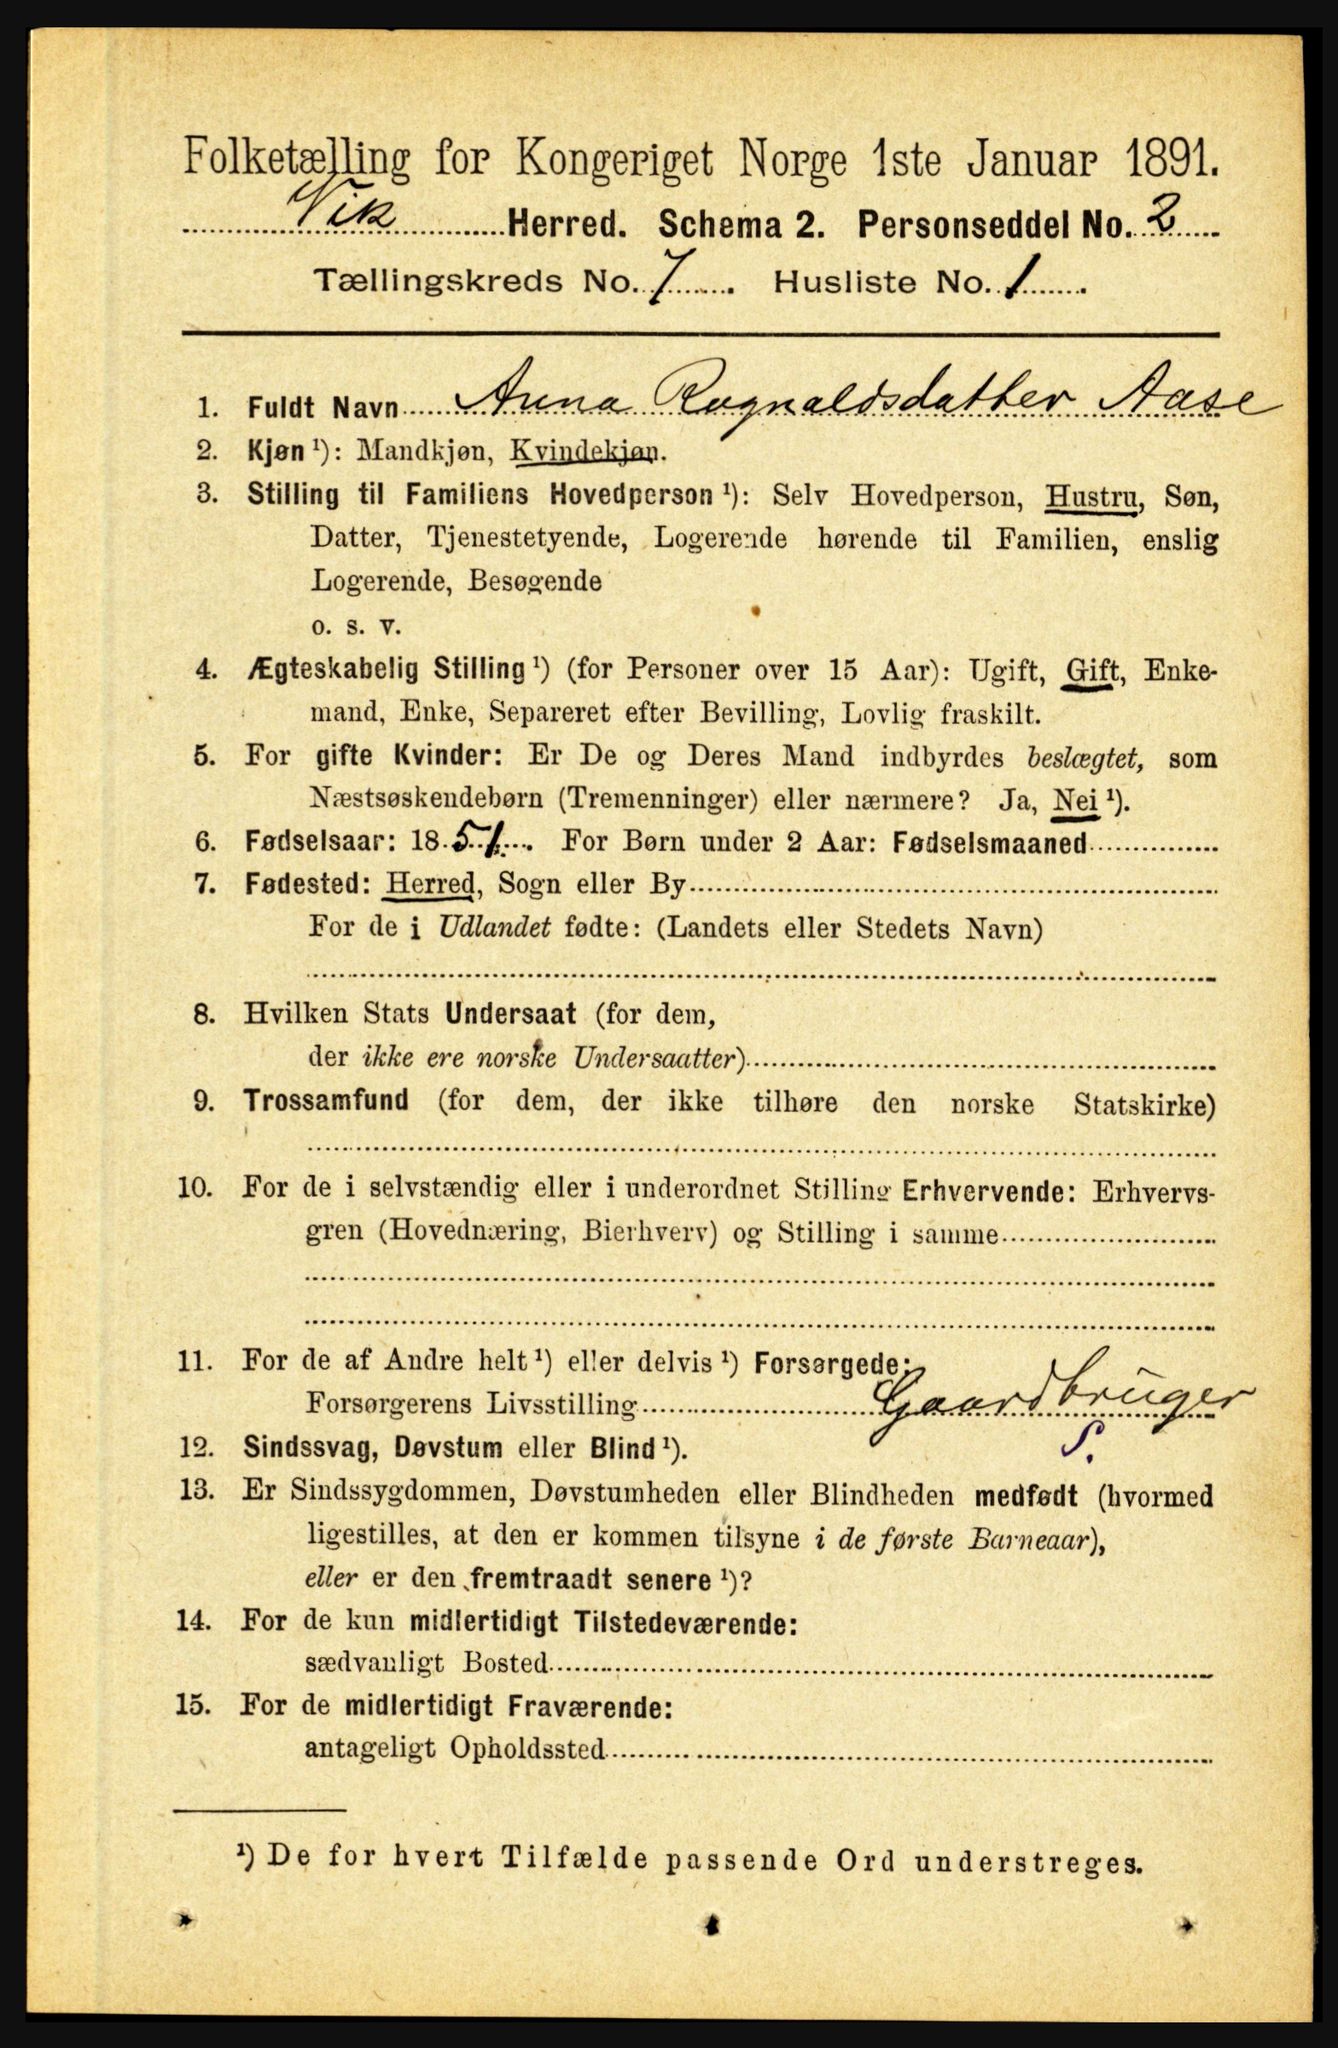 Folketælling for Kongeriget Norge 1ste Januar 1891.
Vik Herred. Schema 2. Personseddel No. 2
Tællingskreds No. 7. Husliste No. 1.
1. Fuldt Navn Anna Rognaldsdatter Aase
2. Kjøn ¹): Mandkjøn, Kvindekjøn.
3. Stilling til Familiens Hovedperson ¹): Selv Hovedperson, Hustru, Søn,
Datter, Tjenestetyende, Logerende hørende til Familien, enslig
Logerende, Besøgende
o. s. v.
4. Ægteskabelig Stilling ¹) (for Personer over 15 Aar): Ugift, Gift, Enke-
mand, Enke, Separeret efter Bevilling, Lovlig fraskilt.
5. For gifte Kvinder: Er De og Deres Mand indbyrdes beslægtet, som
Næstsøskendebørn (Tremenninger) eller nærmere? Ja, Nei ¹).
6. Fødselsaar: 1851. For Børn under 2 Aar: Fødselsmaaned
7. Fødested: Herred, Sogn eller By
For de i Udlandet fødte: (Landets eller Stedets Navn)
8. Hvilken Stats Undersaat (for dem,
der ikke ere norske Undersaatter)
9. Trossamfund (for dem, der ikke tilhøre den norske Statskirke)
10. For de i selvstændig eller i underordnet Stilling Erhvervende: Erhvervs-
gren (Hovednæring, Bierhverv) og Stilling i samme
11. For de af Andre helt ¹) eller delvis ¹) Forsørgede:
Forsørgerens Livsstilling Gaardbruger
S.
12. Sindssvag, Døvstum eller Blind ¹).
13. Er Sindssygdommen, Døvstumheden eller Blindheden medfødt (hvormed
ligestilles, at den er kommen tilsyne i de første Barneaar),
eller er den fremtraadt senere ¹)?
14. For de kun midlertidigt Tilstedeværende:
sædvanligt Bosted
15. For de midlertidigt Fraværende:
antageligt Opholdssted
¹) De for hvert Tilfælde passende Ord understreges.